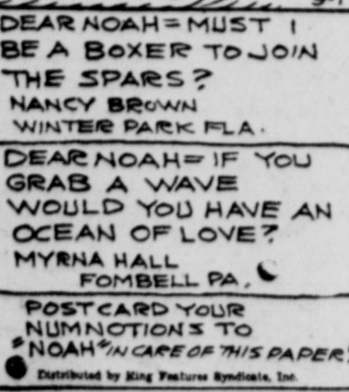 DEAR NOAH= MUST I
BE A BOXER TO JOIN
THE SPARS?
NANCY BROWN
WINTER PARK FLA.
DEAR NOAH= IF YOU
GRAB A WAVE
WOULD YOU HAVE AN
OCEAN OF LOVE?
MYRNA HALL
FOMBELL PA.
POSTCARD YOUR
NUMNOTIONS TO
"NOAH" IN CARE OF THIS PAPER
Distributed by King Features Syndicate, Inc.